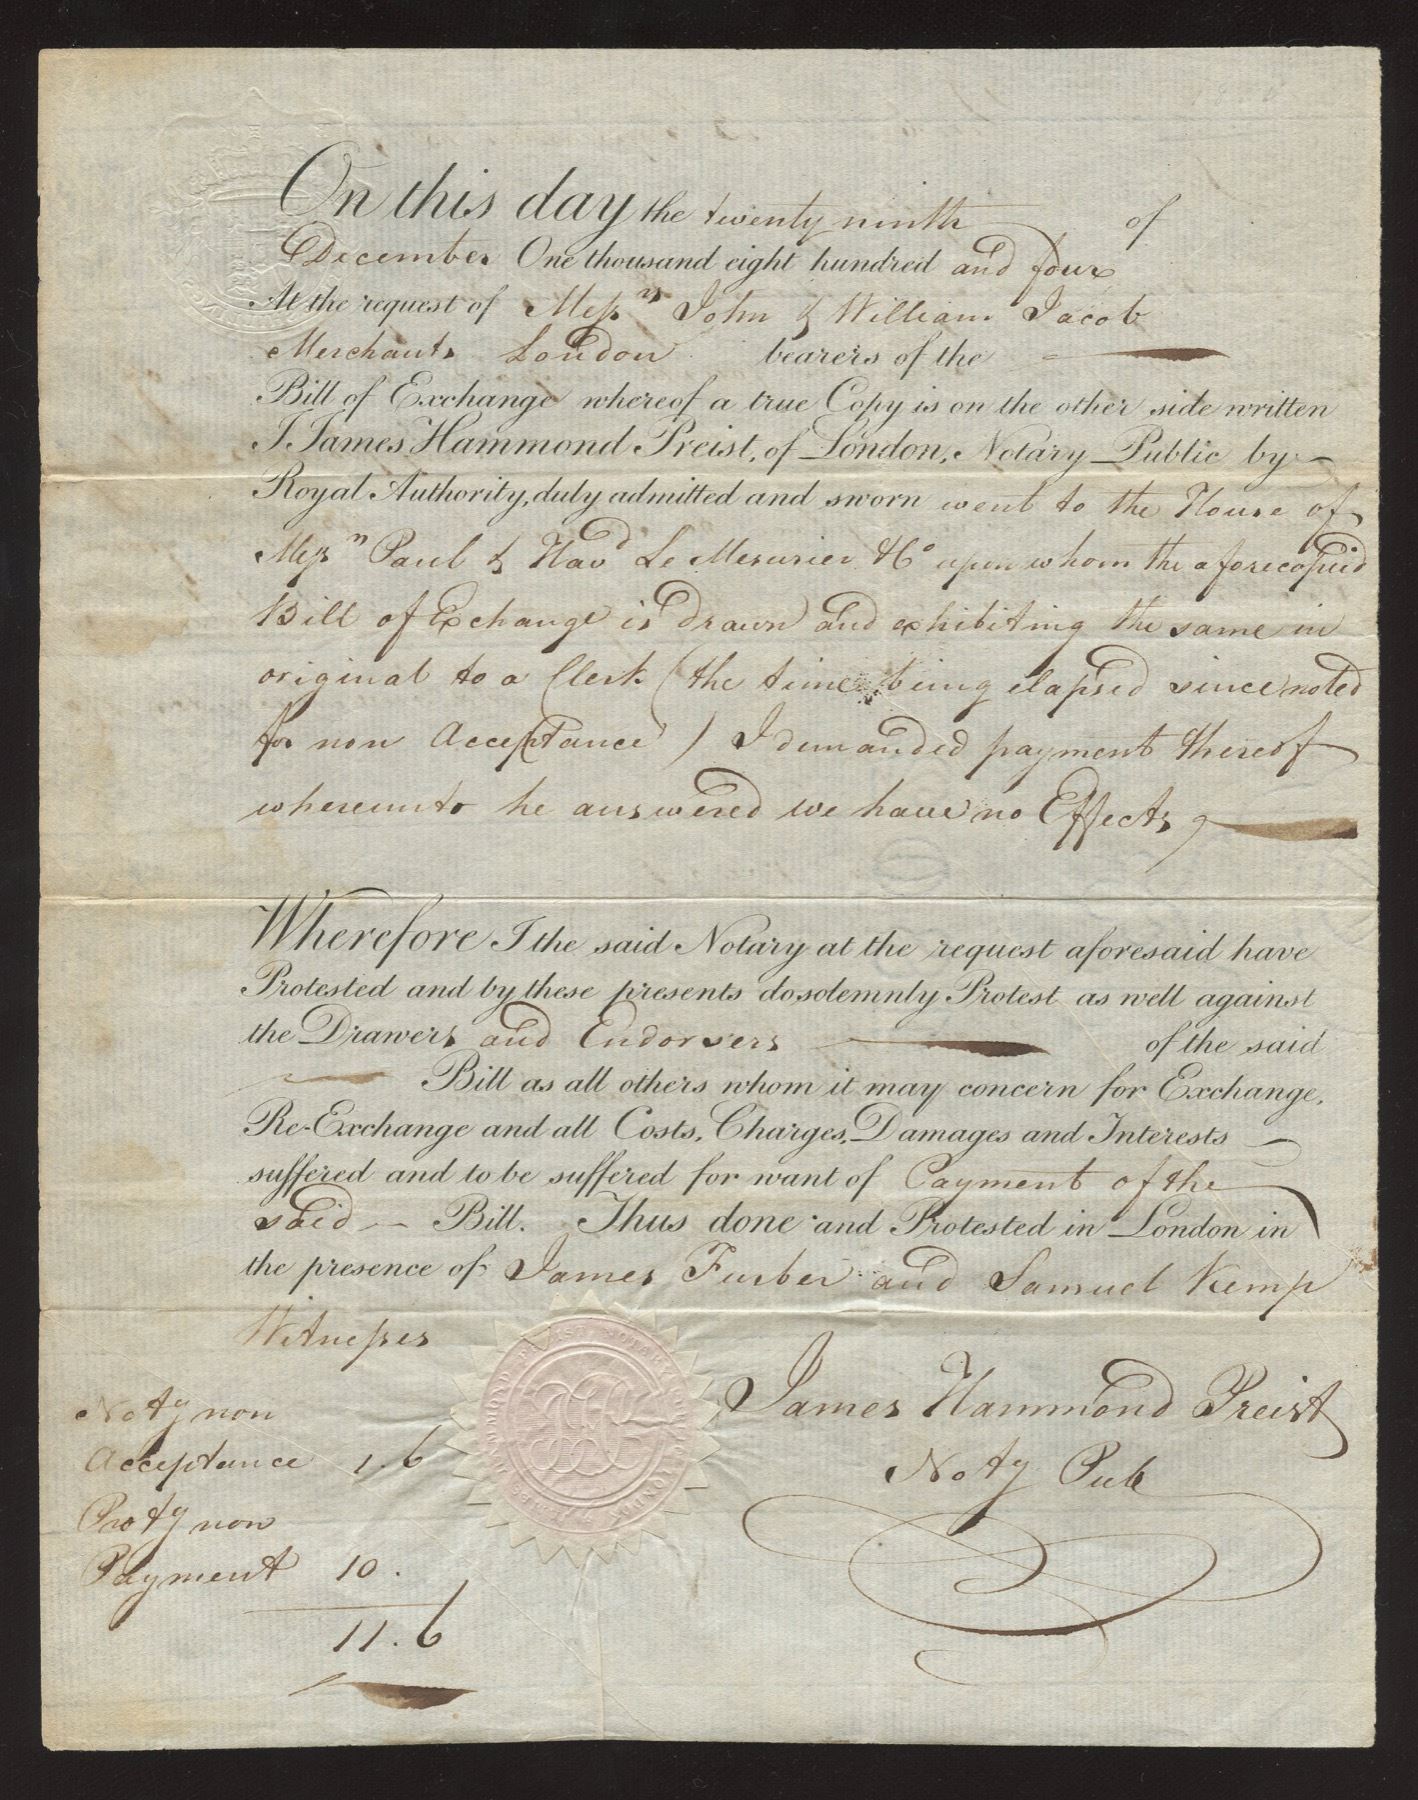 On this day the twenty ninth of
December One thousand eight hundred and four
At the request of Messrs John & William Jacob
Merchants London bearers of the
Bill of Exchange whereof a true Copy is on the other side written
I, James Hammond Preist, of London, Notary Public by
Royal Authority, duly admitted and sworn went to the House of
Messrs Paul & Havd Le Mesurier & Co upon whom the aforecopied
Bill of Exchange is drawn and exhibiting the same in
original to a Clerk (the time being elapsed since noted
for non Acceptance) I demanded payment thereof
whereunto he answered we have no Effects
Wherefore I the said Notary at the request aforesaid have
Protested and by these presents do solemnly Protest as well against
the Drawers and Endorsers of the said
Bill as all others whom it may concern for Exchange,
Re-Exchange and all Costs, Charges, Damages and Interests
suffered and to be suffered for want of Payment of the
said Bill. Thus done and Protested in London in
the presence of James Furber and Samuel Kemp
Witnesses
James Hammond Preist
Noty Pub
Notg non
Acceptance 1.6
Protg non
Payment 10.
11.6